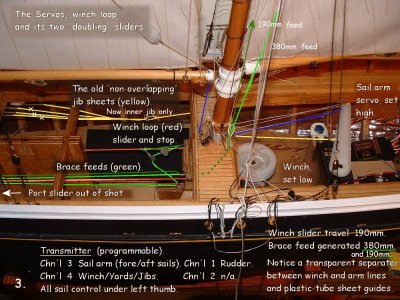 The Servos, winch loop
and its two 'doubling' sliders
190mm feed
380mm feed
The old 'non-overlapping'
jib sheets (yellow).
Now inner jib only
Sail arm
servo, set
high.
Winch loop (red)
slider and stop.
Brace feeds (green).
Winch,
set low.
Port slider out of shot
Winch slider travel 190mm.
Brace feed generated 380mm
and 190mm.
Notice a transparent separater
between winch and arm lines
and plastic tube sheet guides.
Transmitter (programmable).
Chn'l 3 Sail arm (fore/aft sails). Chn'l 1 Rudder.
Chn'l 4 Winch/Yards/Jibs. Chn'l 2 n/a
All sail control under left thumb.
3.